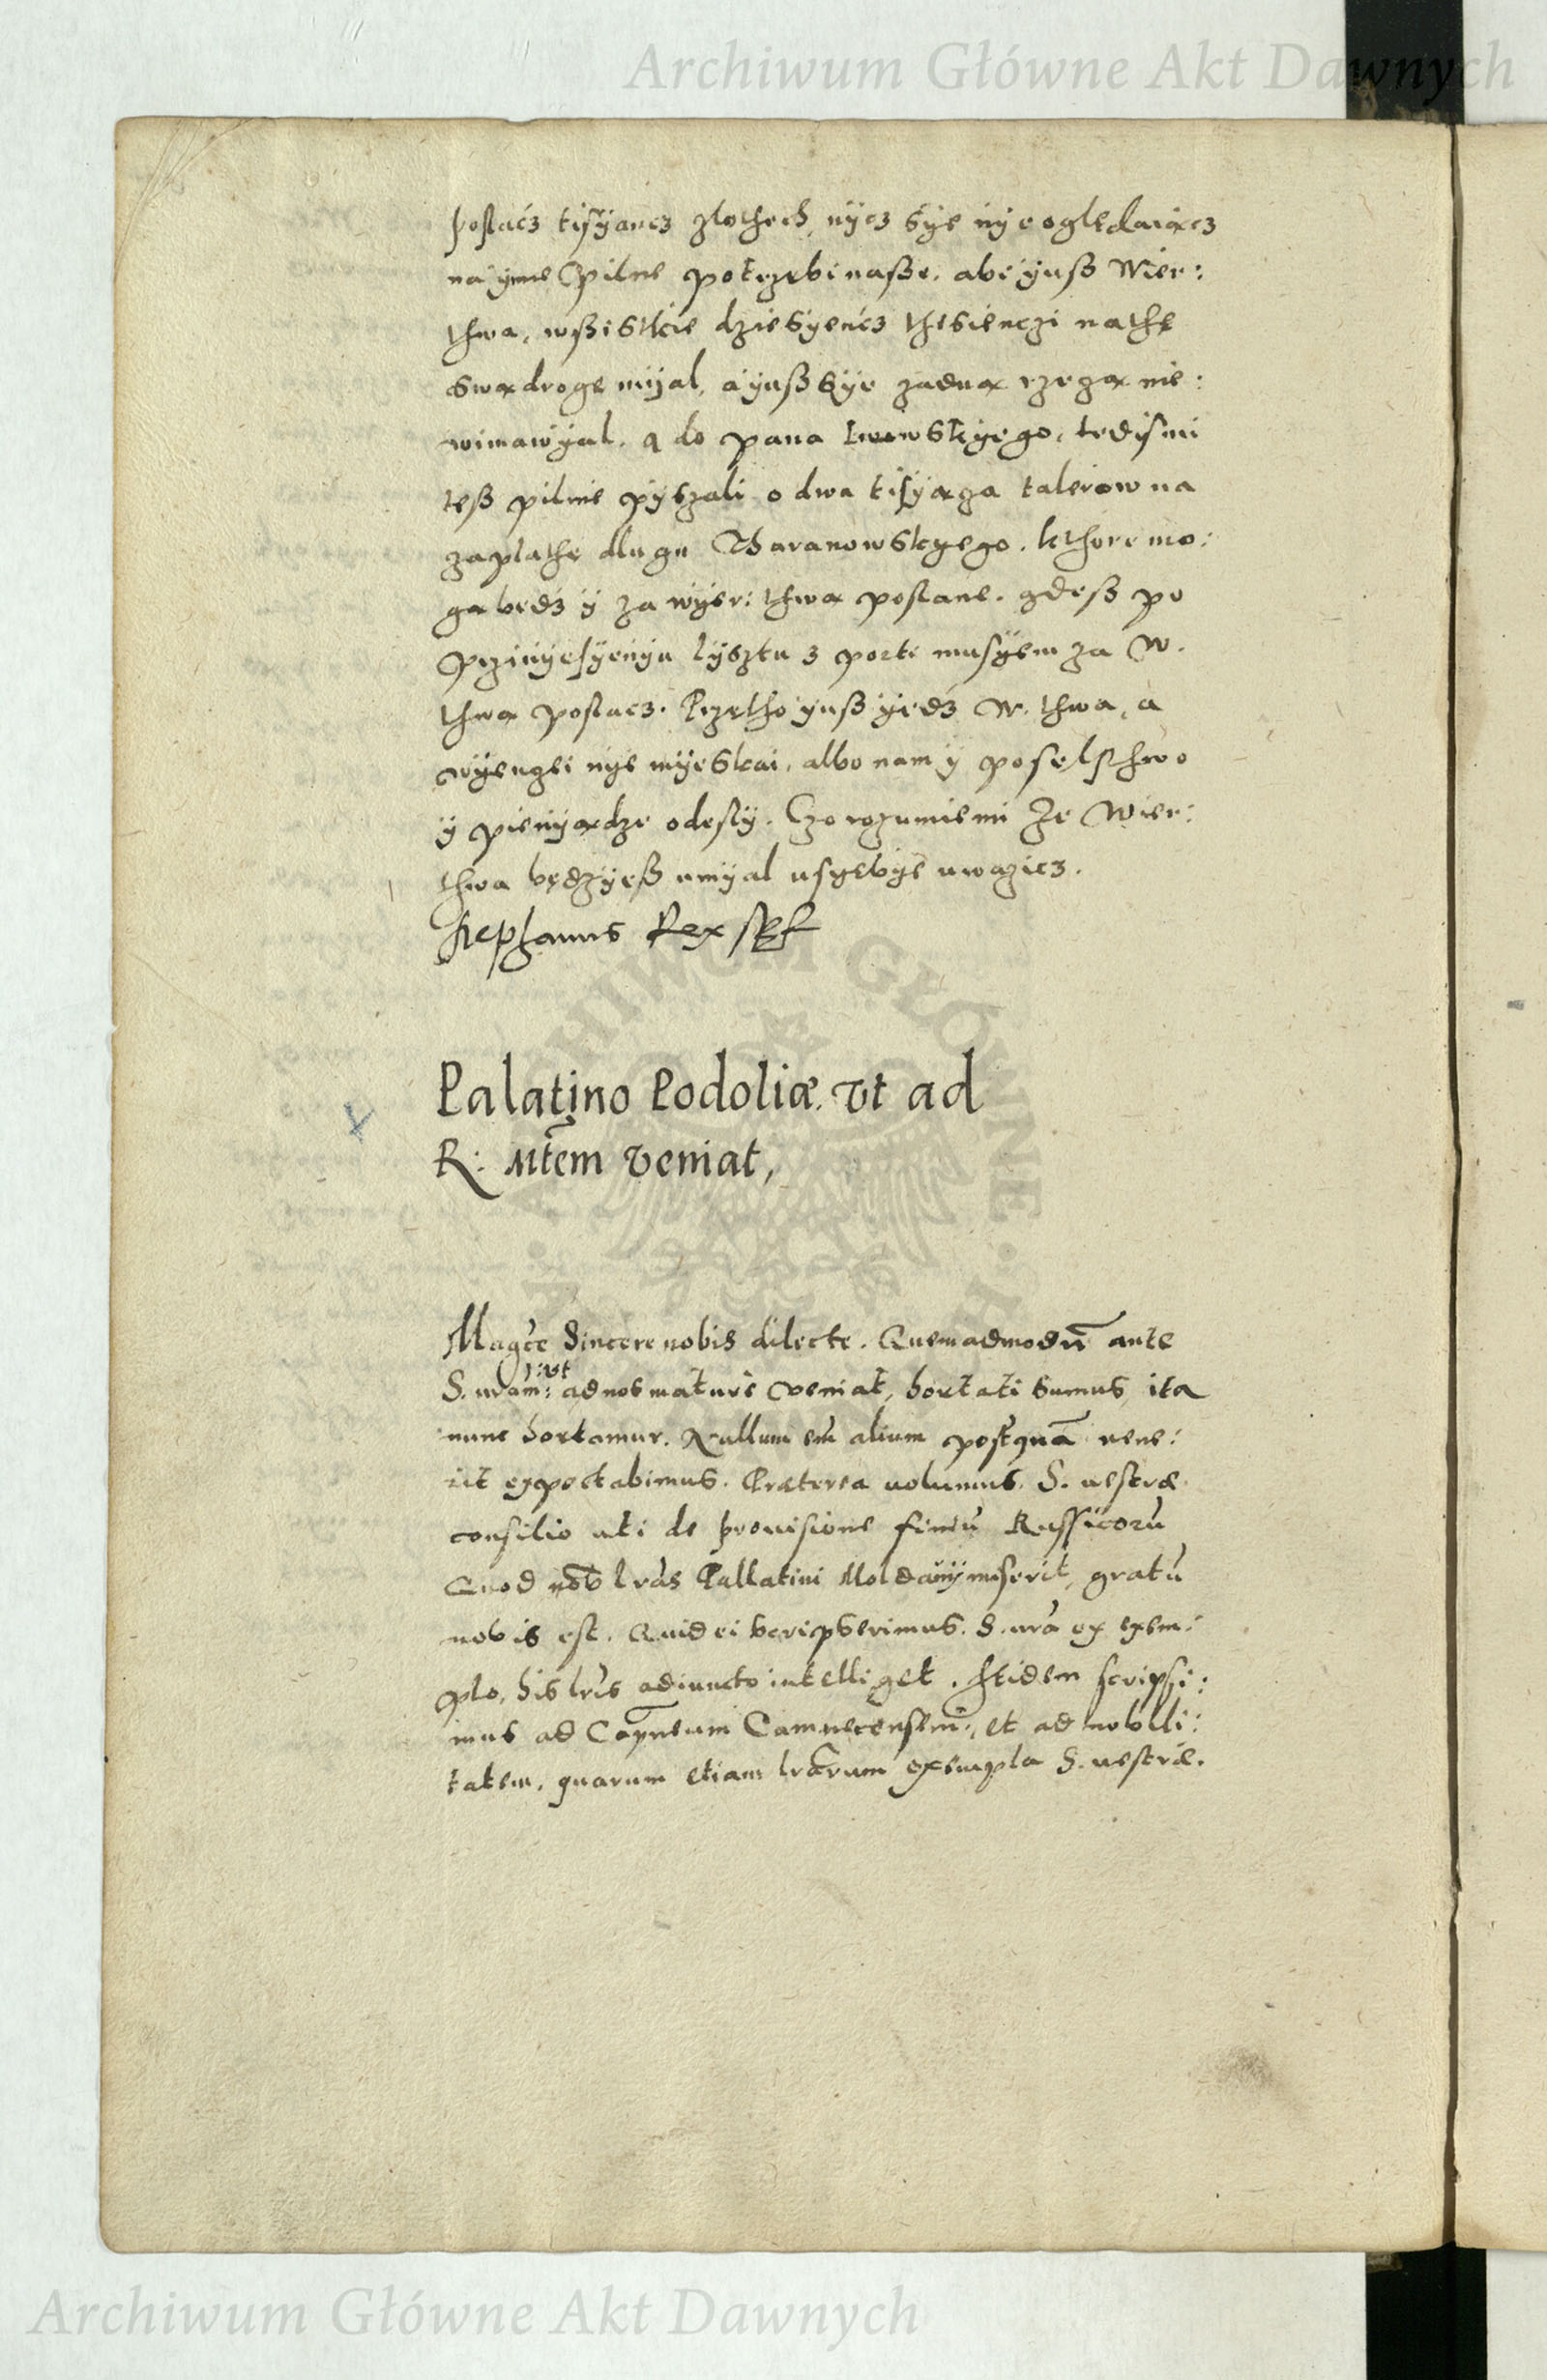 Archiwum Główne Akt Dawnych
poslacz tisÿancz zlothech, nÿcz sÿe nÿe oględaiącz
na ÿnne pilne potrzebi nasze. abe ÿusz Wier:
thwa, wszistkie dziesÿęncz thesienczi na thę
swą drogę mÿal, a ÿusz sÿe zadną rzeczą nie:
wimawÿal. A do pana Lwowskÿego, tedismi
tesz pilnie pÿszali o dwa tisÿącza talerow na
zaplathę dlugu Tharanowskyego. kthore mo:
gą bedz ÿ za wÿer: thwą poslane. gdesz po
przinÿesÿenÿu lÿsztu z porti musÿem za W.
thwą poslacz. Przetho ÿusz ÿedz W. thwa, a
wÿenczei nÿe mÿeskai, albo nam ÿ poselsthwo
ÿ pienÿądze odesly. Czo rozumiemi że Wier:
thwa będzÿesz umÿal u sÿebÿe uwazicz.
Stephanus Rex sst
Palatino Podoliæ. vt ad
R: Mtem veniat,
Magce Sincere nobis dilecte. Quemadmodū ante
S. uram: vt ad nos mature veniat, hortati sumus, ita
nunc hortamur. Nullum em̄ alium postquā uene:
rit expectabimus. Præterea uolumus. S. uestræ
consilio uti de prouisione finiū Russicorū
Quod nob lras Pallatini Moldauÿ miserit, gratū
nobis est. Quid ei scripserimus. S. ura ex exem:
plo, his lris adiuncto intelliget. Itidem scripsi:
mus ad Capneum Camenecensem:, et ad nobili:
tatem. quarum etiam lrarum exempla S. uestræ.
Archiwum Główne Akt Dawnych